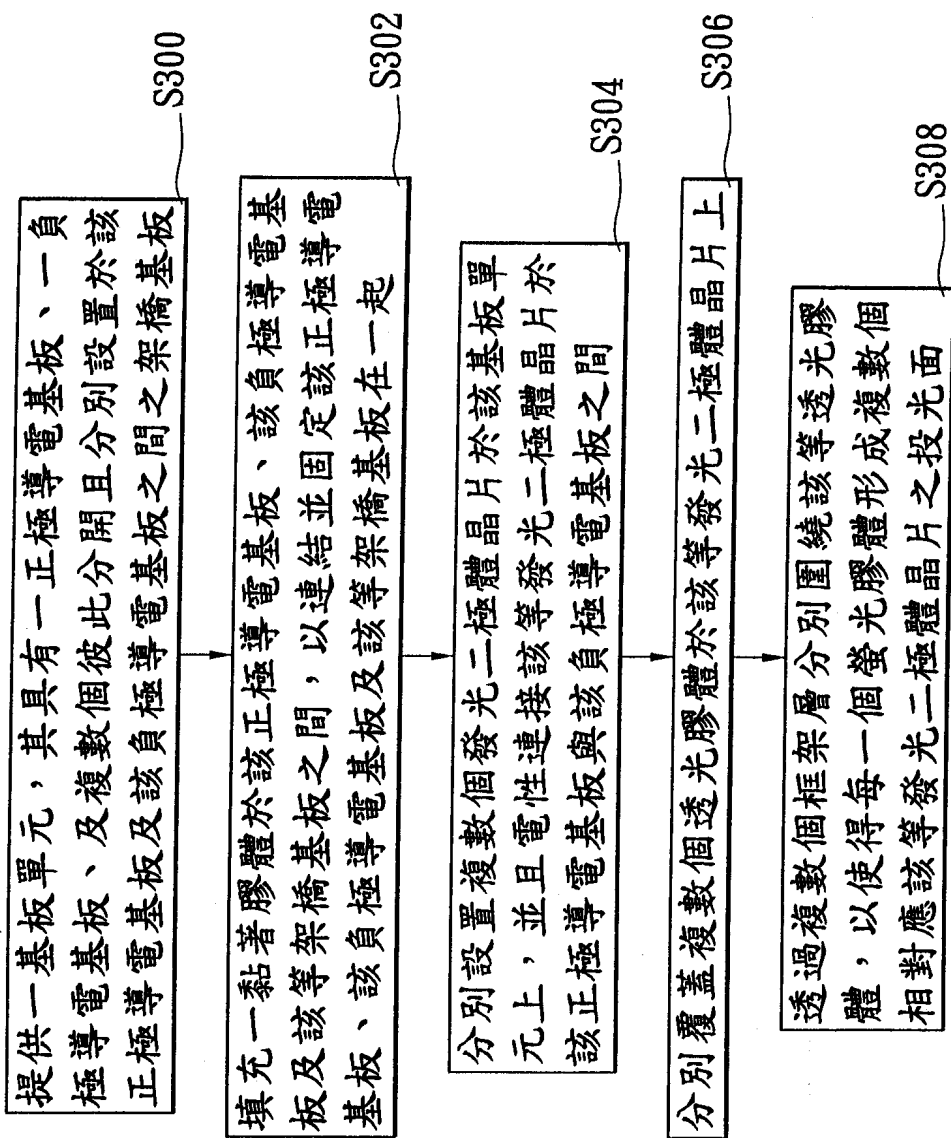 提供一基板單元，其具有一正極導電基板、一負
極導電基板、及複數個彼此分開且分別設置於該
正極導電基板及該負極導電基板之間之架橋基板
S300
填充一黏著膠體於該正極導電基板、該負極導電基
板及該等架橋基板之間，以連結並固定該正極導電
基板、該負極導電基板及該等架橋基板在一起
S302
分別設置複數個發光二極體晶片於該基板單
元上，並且電性連接該等發光二極體晶片於
該正極導電基板與該負極導電基板之間
S304
分別覆蓋複數個透光膠體於該等發光二極體晶片上
S306
透過複數個框架層分別圍繞該等透光膠
體，以使得每一個螢光膠體形成複數個
相對應該等發光二極體晶片之投光面
S308